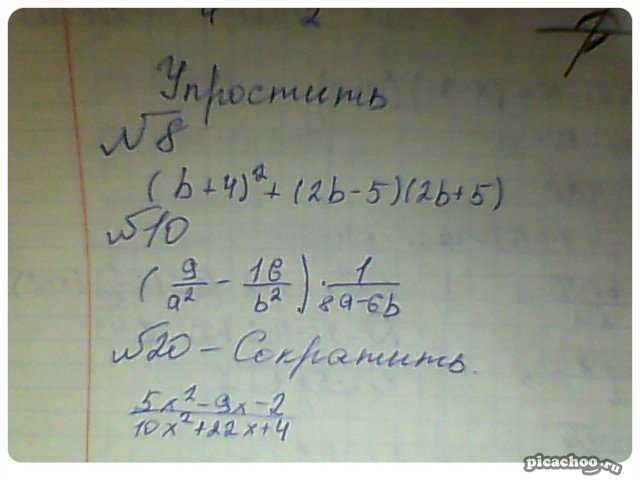 4 2
Упростить
№8
(b+4)² + (2b-5)(2b+5)
№10
(9/a² - 16/b²) · 1/(8a-6b)
№20 - Сократить.
(5x²-9x-2)/(10x²+22x+4)
picachoo.ru